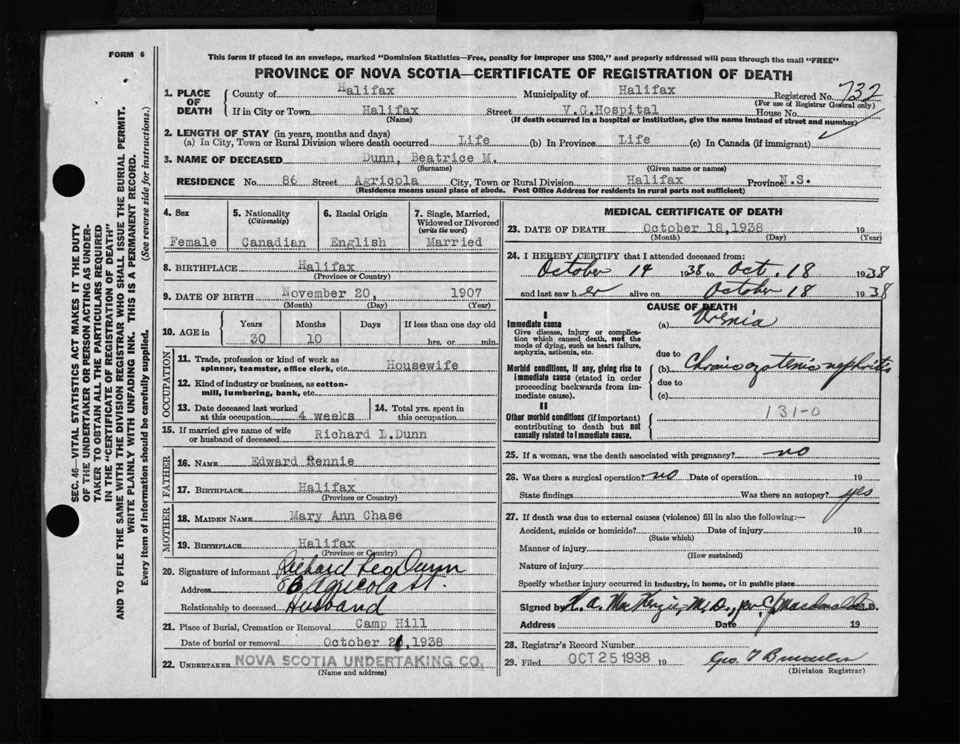 FORM 6
This form if placed in an envelope, marked "Dominion Statistics—Free, penalty for improper use $300," and properly addressed will pass through the mail "FREE"
PROVINCE OF NOVA SCOTIA—CERTIFICATE OF REGISTRATION OF DEATH
SEC. 46—VITAL STATISTICS ACT MAKES IT THE DUTY
OF THE UNDERTAKER OR PERSON ACTING AS UNDER-
TAKER TO OBTAIN ALL THE PARTICULARS REQUIRED
IN THE "CERTIFICATE OF REGISTRATION OF DEATH"
AND TO FILE THE SAME WITH THE DIVISION REGISTRAR WHO SHALL ISSUE THE BURIAL PERMIT.
WRITE PLAINLY WITH UNFADING INK. THIS IS A PERMANENT RECORD.
Every item of information should be carefully supplied. (See reverse side for instructions.)
1. PLACE OF DEATH
County of Halifax Municipality of Halifax Registered No. 732
(For use of Registrar General only)
If in City or Town Halifax Street V.G.Hospital House No.
(Name) (If death occurred in a hospital or institution, give the name instead of street and number)
2. LENGTH OF STAY (in years, months and days)
(a) In City, Town or Rural Division where death occurred Life (b) In Province Life (c) In Canada (if immigrant)
3. NAME OF DECEASED Dunn, Beatrice M.
(Surname) (Given name or names)
RESIDENCE No. 86 Street Agricola City, Town or Rural Division Halifax Province N.S.
(Residence means usual place of abode. Post Office Address for residents in rural parts not sufficient)
4. Sex
Female
5. Nationality
(Citizenship)
Canadian
6. Racial Origin
English
7. Single, Married,
Widowed or Divorced
(write the word)
Married
8. BIRTHPLACE Halifax
(Province or Country)
9. DATE OF BIRTH November 20, 1907
(Month) (Day) (Year)
10. AGE in
Years Months Days If less than one day old
30 10 hrs. or min.
OCCUPATION
11. Trade, profession or kind of work as
spinner, teamster, office clerk, etc. Housewife
12. Kind of industry or business, as cotton-
mill, lumbering, bank, etc.
13. Date deceased last worked
at this occupation 4 weeks
14. Total yrs. spent in
this occupation
15. If married give name of wife
or husband of deceased Richard L.Dunn
FATHER
16. NAME Edward Rennie
17. BIRTHPLACE Halifax
(Province or Country)
MOTHER
18. MAIDEN NAME Mary Ann Chase
19. BIRTHPLACE Halifax
(Province or Country)
20. Signature of informant Richard Leo Dunn
Address 86 Agricola St.
Relationship to deceased Husband
21. Place of Burial, Cremation or Removal Camp Hill
Date of burial or removal October 21, 1938
22. UNDERTAKER NOVA SCOTIA UNDERTAKING CO.
(Name and address)
MEDICAL CERTIFICATE OF DEATH
23. DATE OF DEATH October 18,1938 19
(Month) (Day) (Year)
24. I HEREBY CERTIFY that I attended deceased from:
October 14 1938 to Oct. 18 1938
and last saw her alive on October 18 1938
CAUSE OF DEATH
I
Immediate cause
Give disease, injury or complica-
tion which caused death, not the
mode of dying, such as heart failure,
asphyxia, asthenia, etc.
(a) Uremia
due to
Morbid conditions, if any, giving rise to
immediate cause (stated in order
proceeding backwards from im-
mediate cause).
(b) Chronic azotemic nephritis
due to
(c)
II
Other morbid conditions (if important)
contributing to death but not
causally related to immediate cause.
131-0
25. If a woman, was the death associated with pregnancy? no
26. Was there a surgical operation? no Date of operation 19
State findings Was there an autopsy? yes
27. If death was due to external causes (violence) fill in also the following:—
Accident, suicide or homicide? Date of injury 19
(State which)
Manner of injury
(How sustained)
Nature of injury
Specify whether injury occurred in industry, in home, or in public place
Signed by H. A. MacKenzie, M.D., per M.D.
Address Date 19
28. Registrar's Record Number
29. Filed OCT 25 1938 19 Geo.
(Division Registrar)